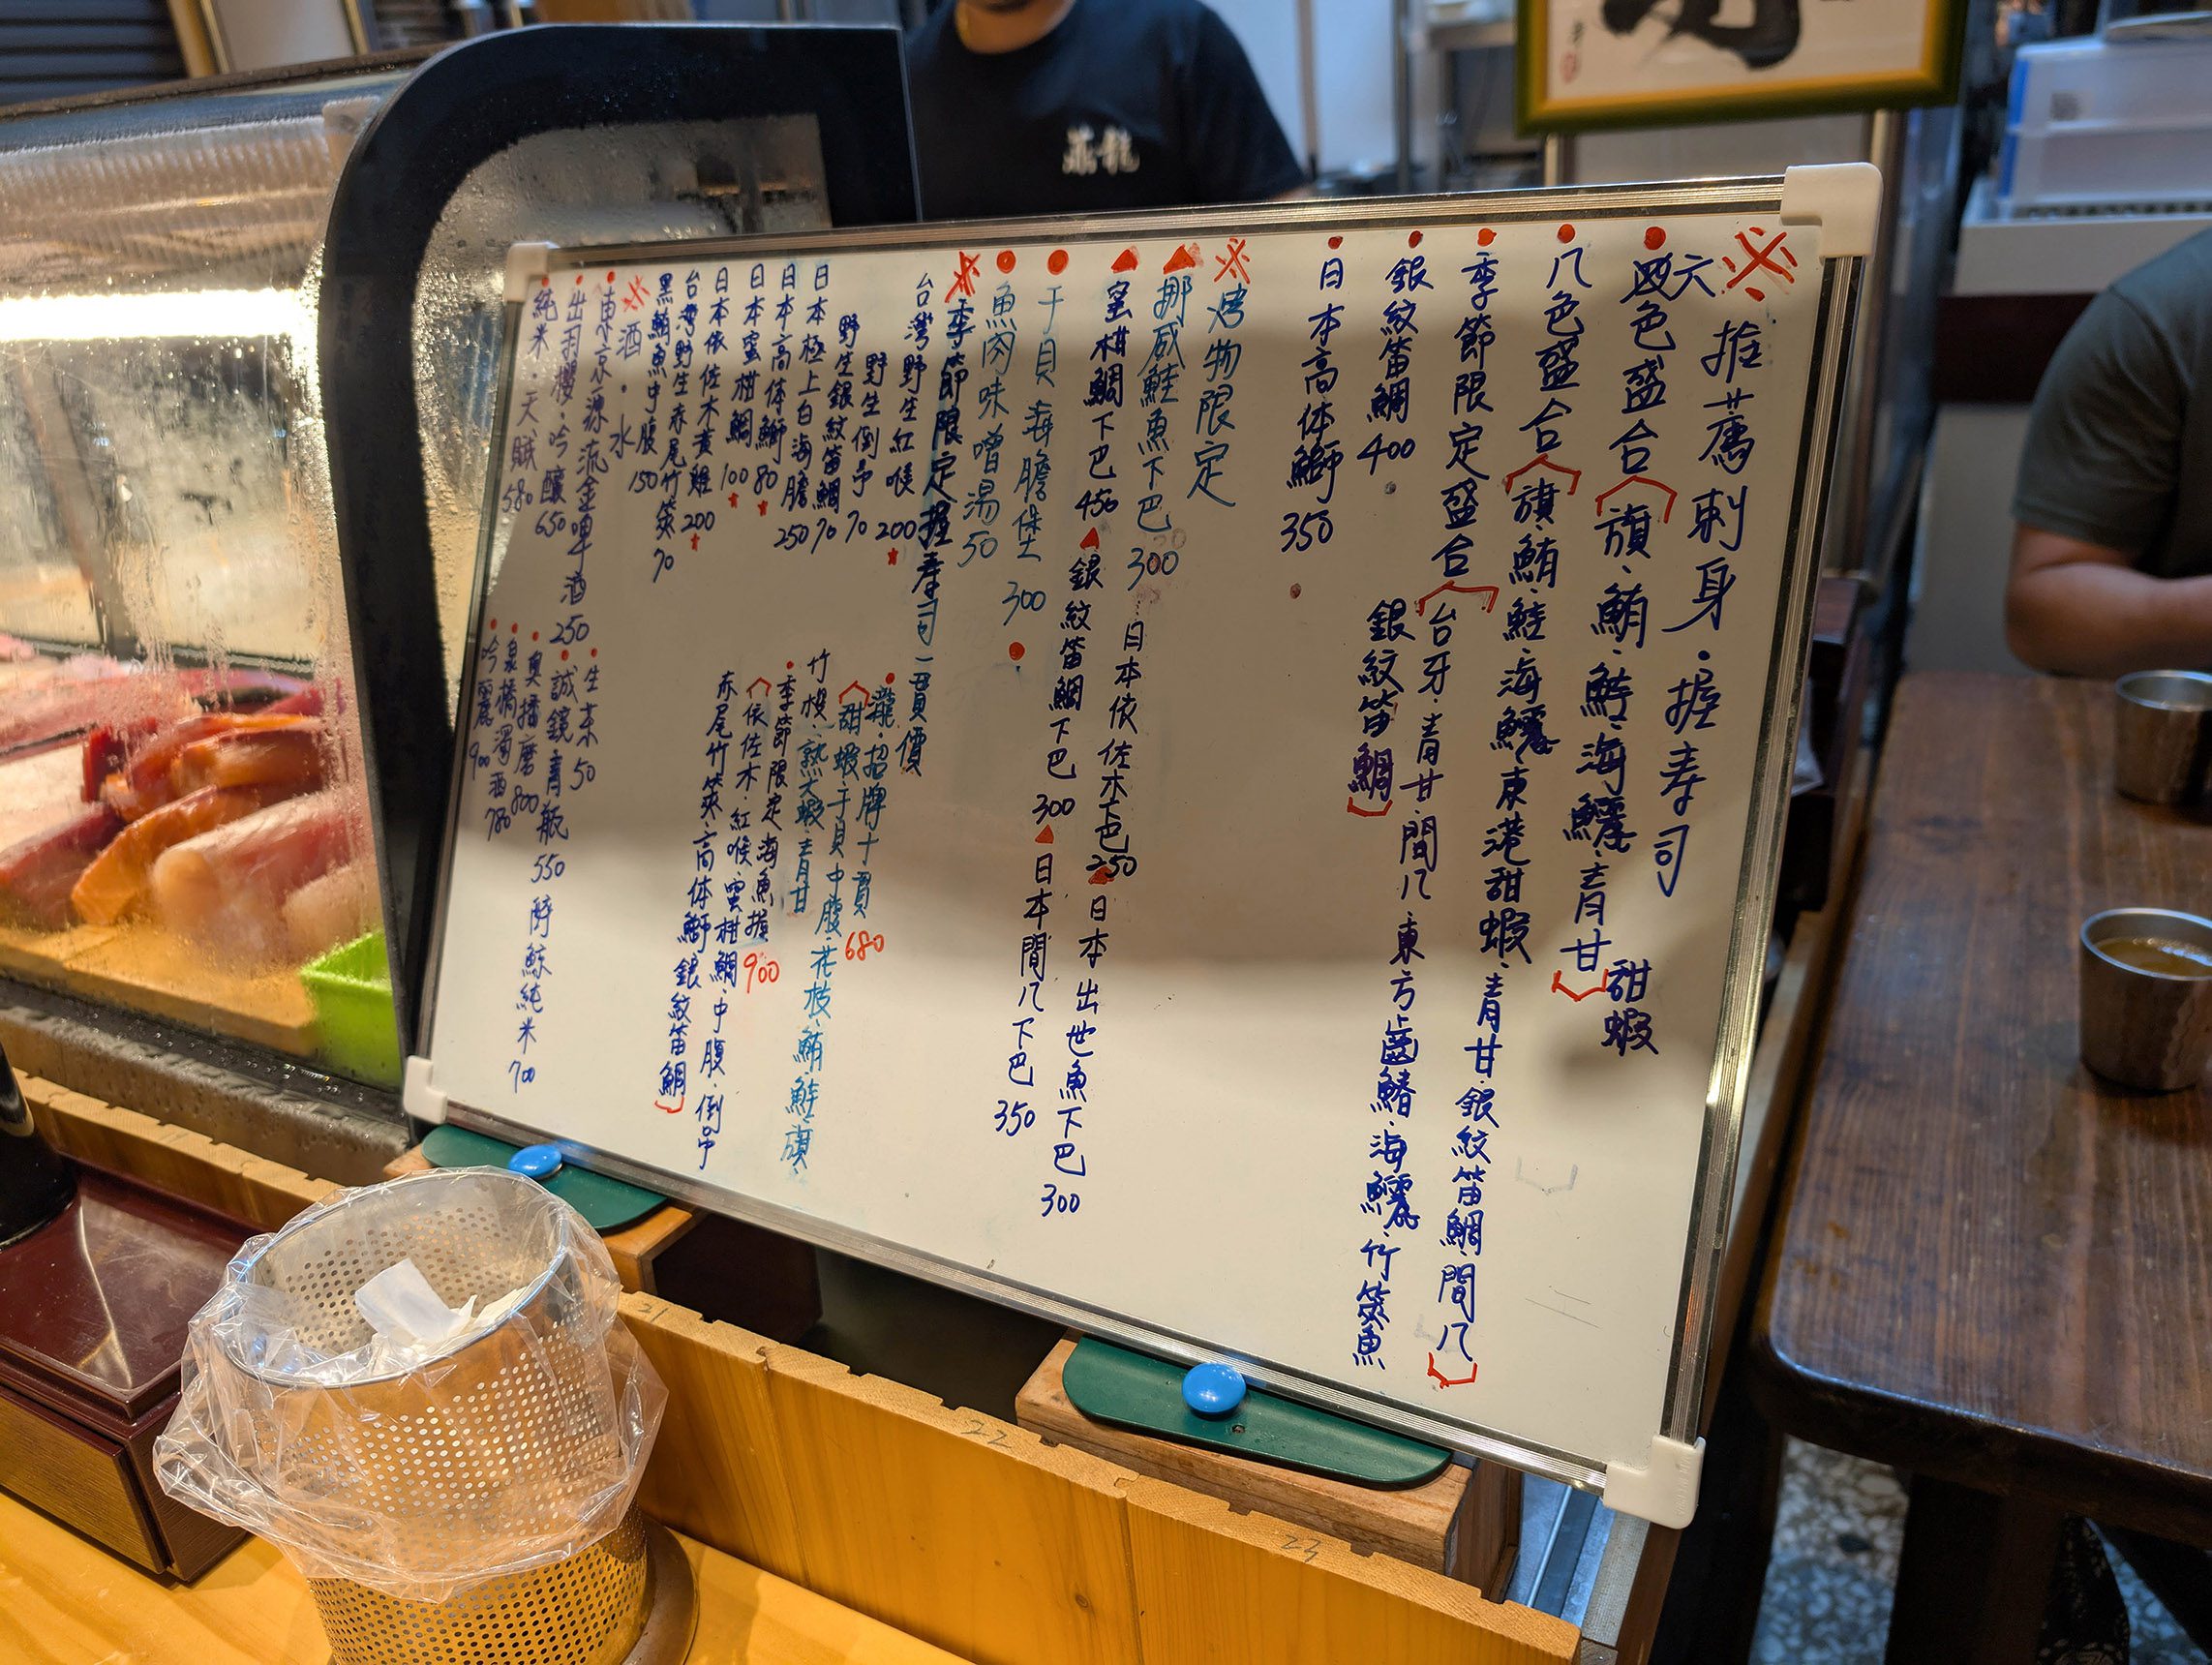 鼎龍
推薦刺身·握寿司
六色盛合(旗·鮪·鮭·海鱺·青甘)
甜蝦
八色盛合(旗·鮪·鮭·海鱺·東港甜蝦·青甘·銀紋笛鯛·間八)
季節限定盛合(台牙·青甘·間八·東方齒鰆·海鱺·竹筴魚
銀紋笛鯛)
銀紋笛鯛 400
日本高体鰤 350
烤物限定
挪威鮭魚下巴 300
日本依佐木下巴 250
日本出世魚下巴 300
蜜柑鯛下巴 450
銀紋笛鯛下巴 300
日本間八下巴 350
干貝海膽堡 300
魚肉味噌湯 50
季節限定握寿司(一貫價
台灣野生紅喉 200
野生倒吊 70
野生銀紋笛鯛 70
日本極上白海膽 250
日本高体鰤 80
日本蜜柑鯛 100
日本依佐木 200
台灣野生赤尾竹筴 70
黑鮪魚中腹 150
龍·招牌十貫 680
(甜蝦·干貝·中腹·花枝·鮪·鮭·旗·
竹筴·熟大蝦·青甘
季節限定海魚握 900
(依佐木·紅喉·蜜柑鯛·中腹·倒吊
赤尾竹筴·高体鰤·銀紋笛鯛)
酒·水
東京源流金啤酒 250
生来 50
出羽櫻·吟釀 650
誠鏡青瓶 550
醉鯨純米 700
純米·天賦 580
奥播磨 800
泉橋濁酒 780
吟麗 900
21
22
23